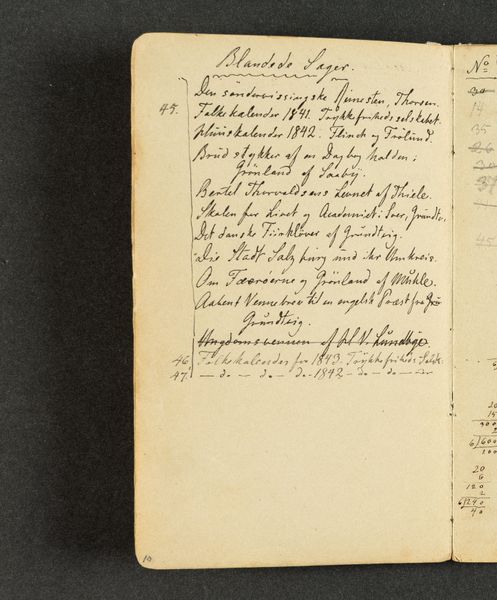 Blandede Sager.
Den söndervissingske Runesten, Thorsen.
45. Folkekalender 1841. Trykkefrihedsselskabet.
pluviskalender 1842. Flinch og Frölund.
Brudstykker af en Dagbog holden i
Grönland af Saabÿe.
Bertel Thorvaldsens Levnet af Thiele.
Skolen for Livet og Academiet i Soer, Grundtv.
Det danske Fiirkløver af Grundtvig.
Die Stadt Salzburg und ihr Umkreis.
Om Færøerne og Grönland af Mühle.
Aabent Vennebrev til en engelsk Præst fra
Grundtvig.
Ungdomsvennen af Lundbye.
46. Folkekalender for 1843 Trykkefriheds Selsk.
47. — do — do — do - 1842 — do — do —
10
No
20
6
120
2
6)240
40